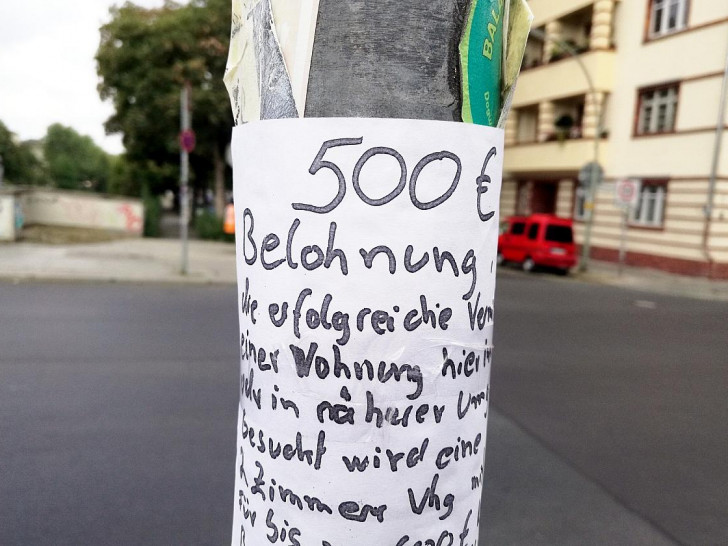 500 €
Belohnung
die erfolgreiche
einer Wohnung hier
oder in näherer
Gesucht wird eine
2 Zimmer Whg
für bis
BAL